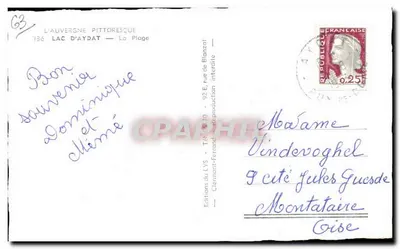 63
L'AUVERGNE PITTORESQUE
LAC D'AYDAT — La Plage
Bon
souvenir
Dominique
et
Mémé
RÉPUBLIQUE FRANÇAISE
0,25
Madame
Vindevoghel
9 cité Jules Guesde
Montataire
Oise
Editions du LYS
rue de Blanzat
Clermont-Ferrand
reproduction interdite
HipPostcard.com